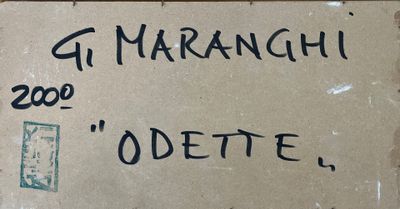 G. MARANGHI
2000
"ODETTE"